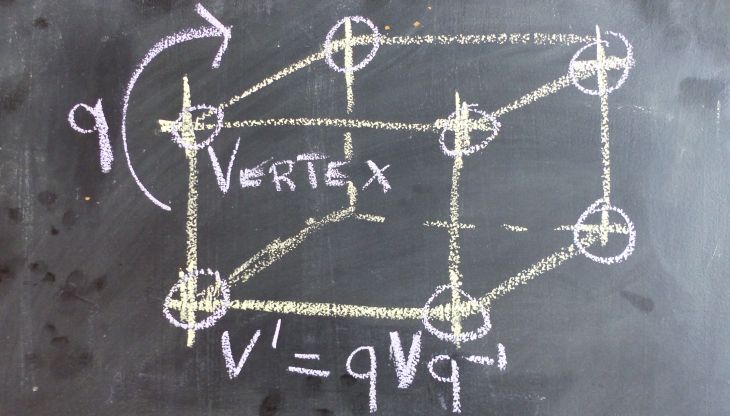 q
VERTEX
V' = qVq⁻¹